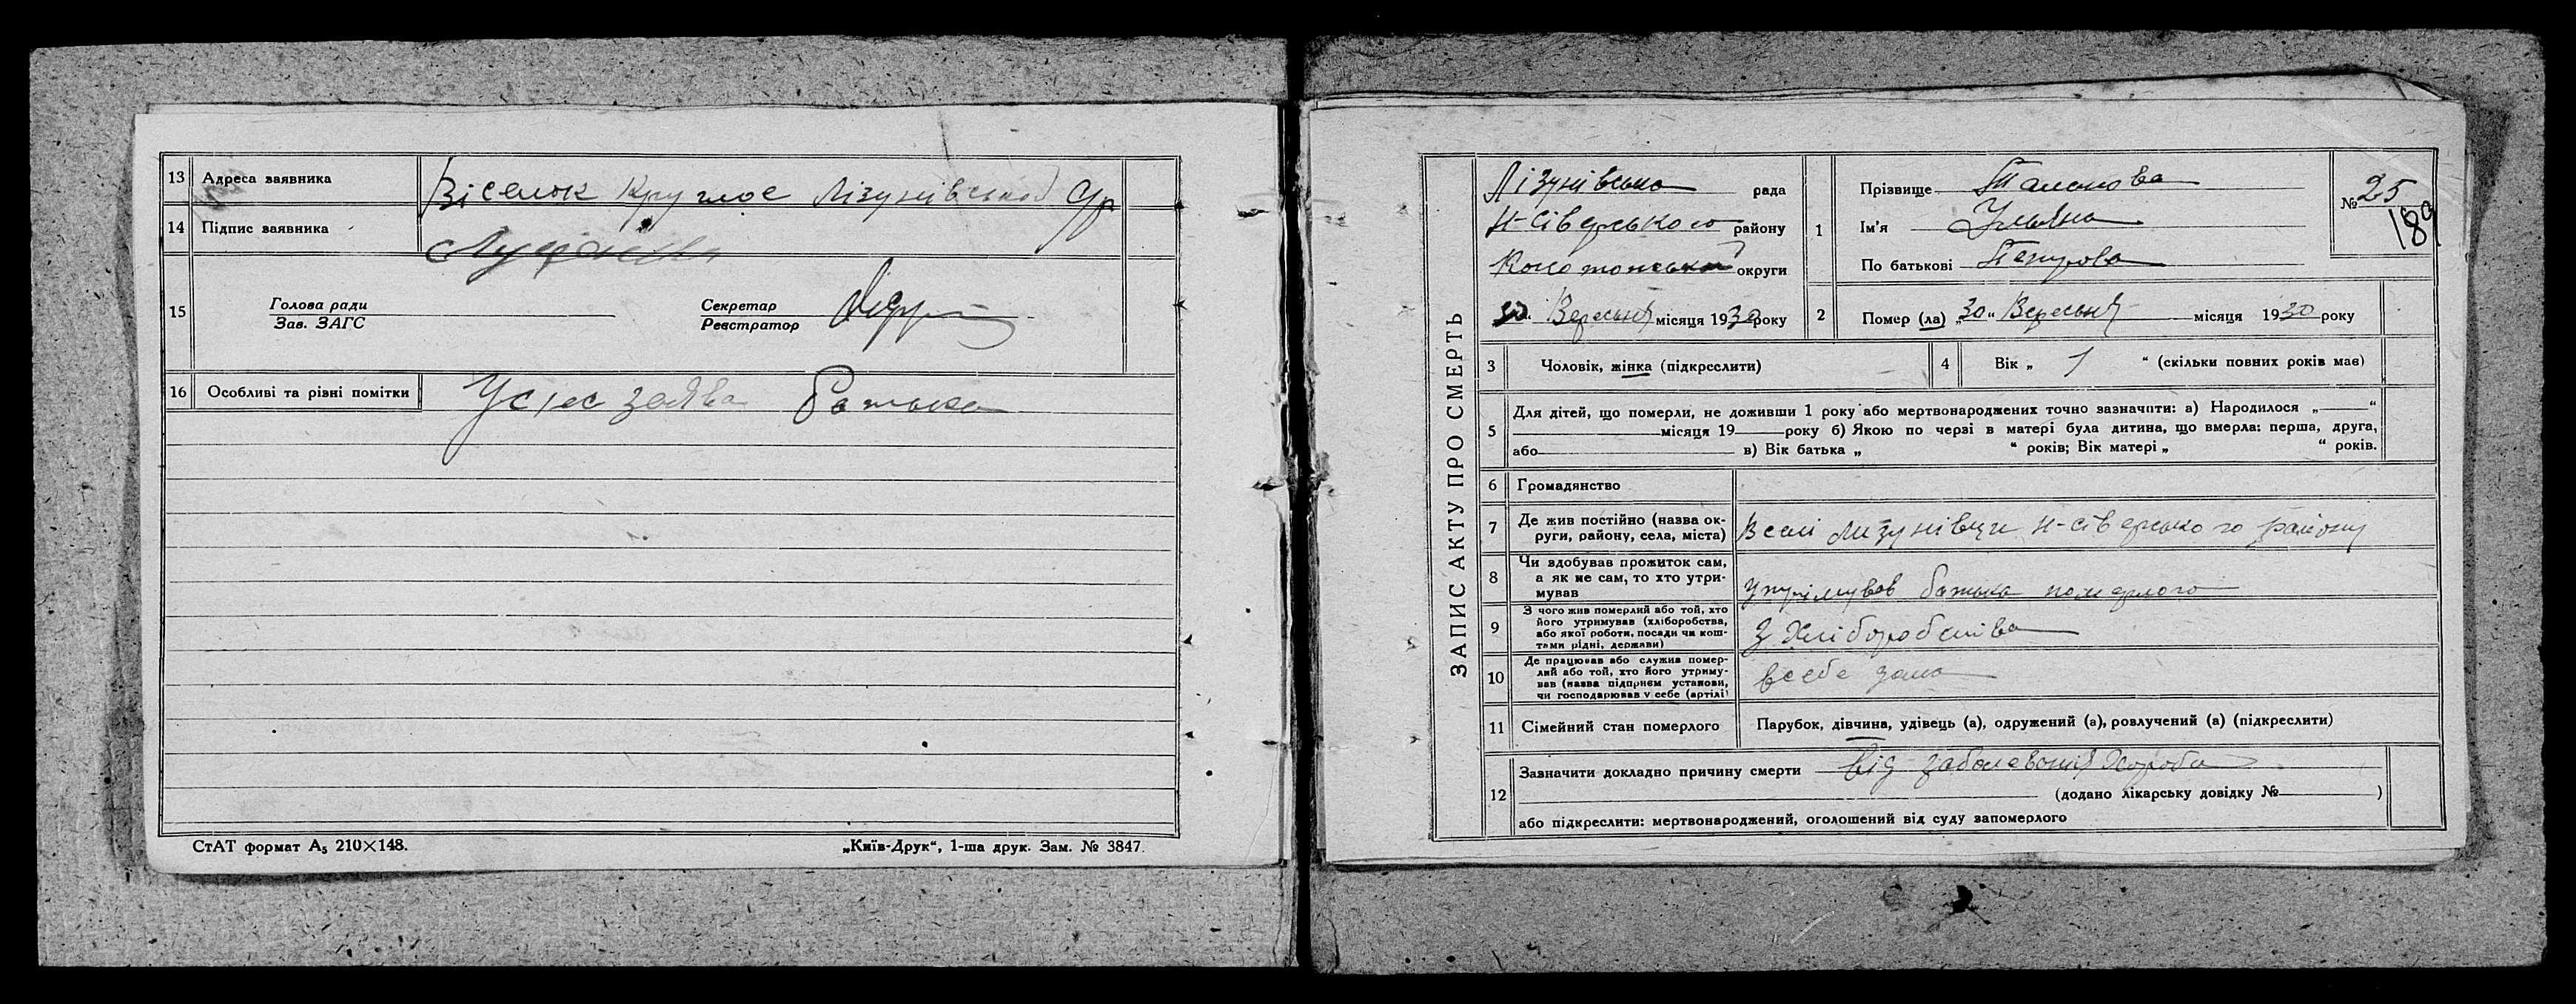 13 Адреса заявника Віселок Круглое Лізунівської С/р
14 Підпис заявника
15 Голова ради
Зав. ЗАГС
Секретар
Реєстратор
16 Особливі та різні помітки Усіес заява батька
СтАТ формат А5 210×148.
„Київ-Друк“, 1-ша друк. Зам. № 3847.
ЗАПИС АКТУ ПРО СМЕРТЬ
Лізунівська рада
Н-Сіверського району
Конотопської округи
30 Вересня місяця 1930 року
1 Прізвище
Ім'я Ульяна
По батькові Петрова
№ 25
189
2 Помер (ла) „30“ Вересня місяця 1930 року
3 Чоловік, жінка (підкреслити)
4 Вік „ 1 “ (скільки повних років має)
5 Для дітей, що померли, не доживши 1 року або мертвонароджених точно зазначити: а) Народилося „ “
місяця 19 року б) Якою по черзі в матері була дитина, що вмерла: перша, друга,
або в) Вік батька „ “ років; Вік матері „ “ років.
6 Громадянство
7 Де жив постійно (назва ок-
руги, району, села, міста) В селі Лизунівци Н-Сіверського району
8 Чи здобував прожиток сам,
а як не сам, то хто утри-
мував утрімував батька померлого
9 З чого жив померлий або той, хто
його утримував (хліборобства,
або якої роботи, посади чи кош-
тами рідні, держави) З Хліборобства
10 Де працював або служив помер-
лий або той, хто його утриму-
вав (назва підприєм установи,
чи господарював у себе (артілі) всебе
11 Сімейний стан померлого Парубок, дівчина, удівець (а), одружений (а), розлучений (а) (підкреслити)
12 Зазначити докладно причину смерти від заболевания Хороба
(додано лікарську довідку № )
або підкреслити: мертвонароджений, оголошений від суду запомерлого